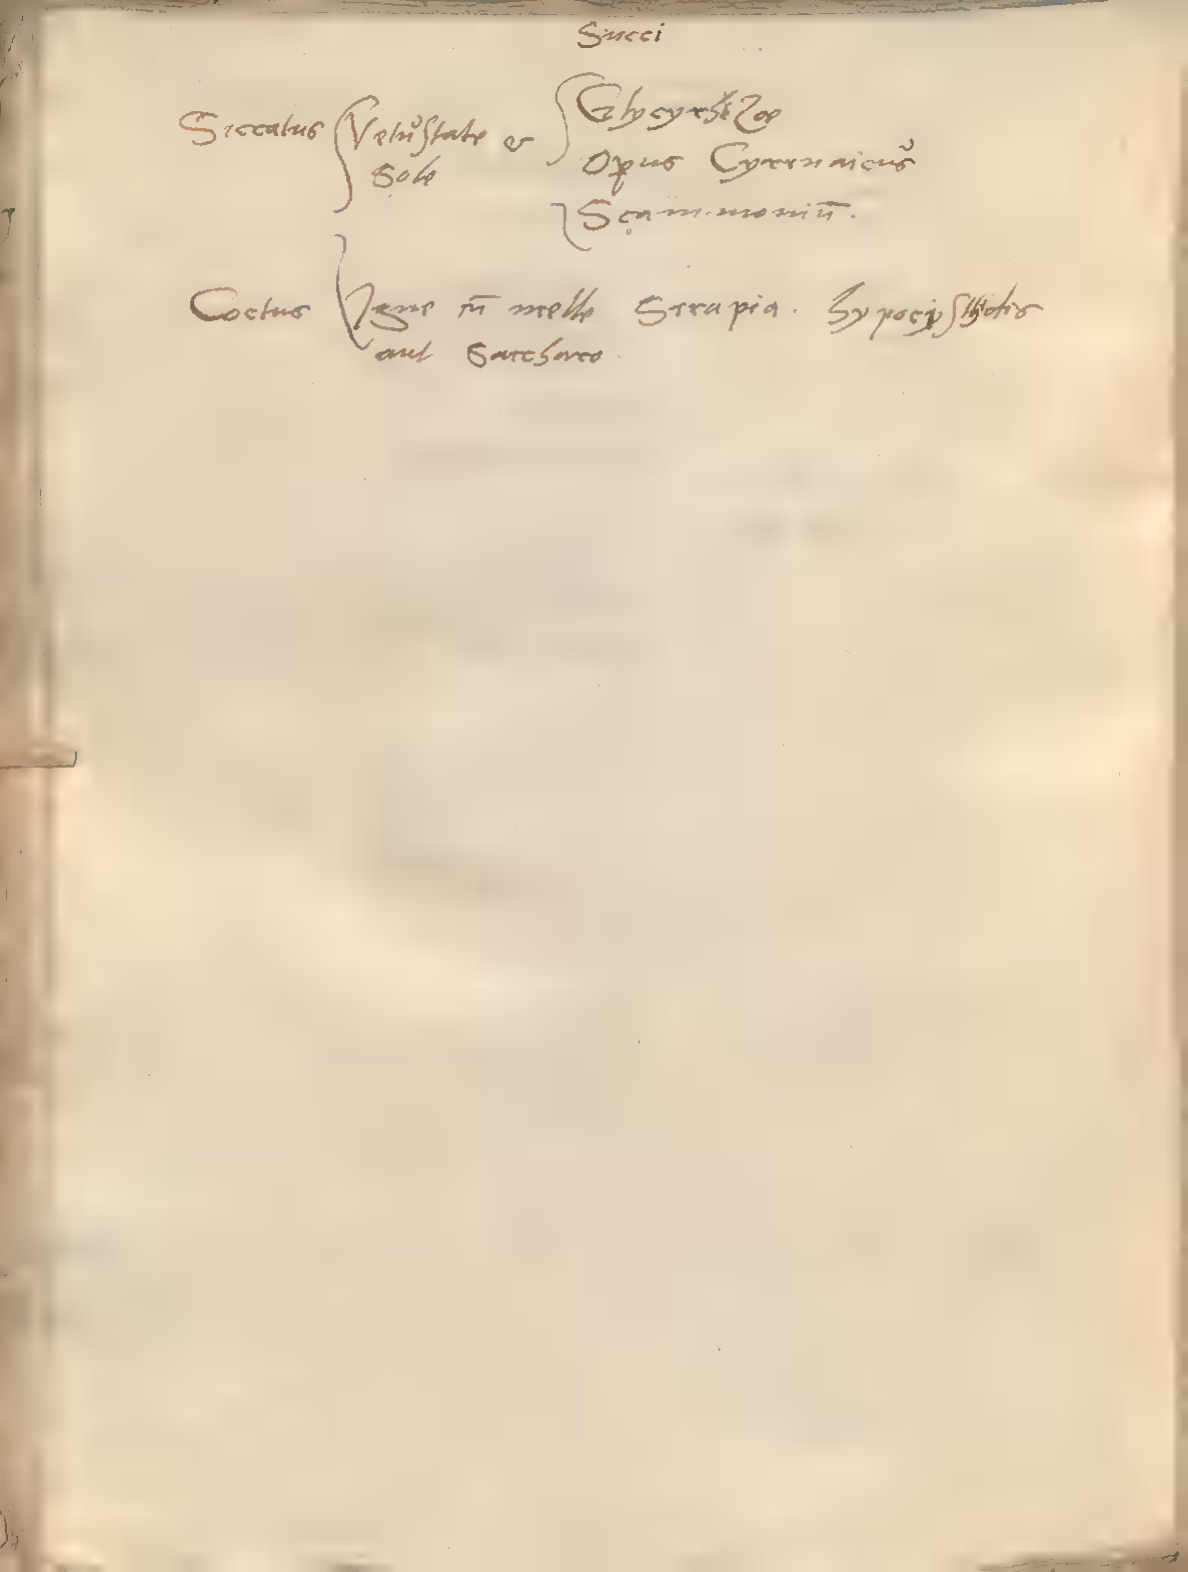 Succi
Siccatus Vetustate et Glycyrhizae
Sole Opus Cyrenaicus
Scammoniū.
Coctus Igne cū melle Sirapia. hypocysthidis
aut Saccharo.